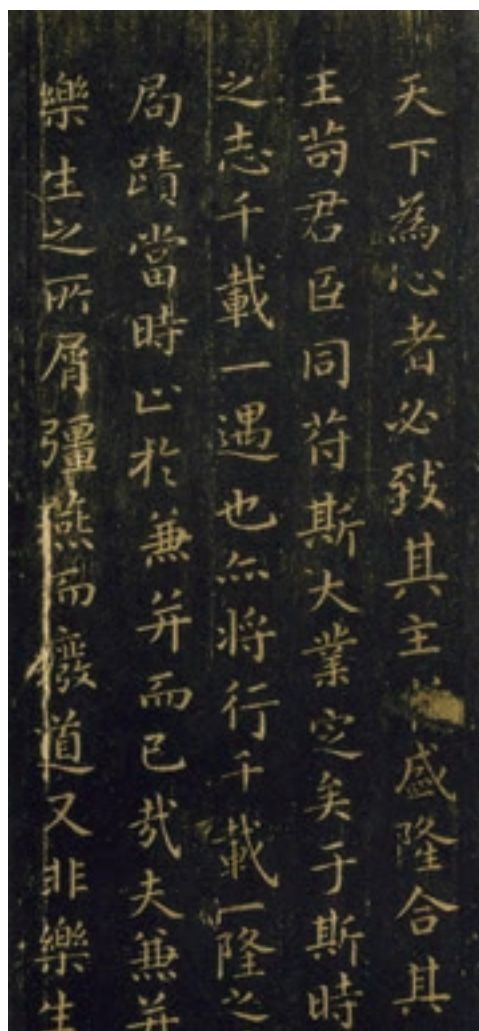 天下為心者必致其主盛隆合其
王苟君臣同符斯大業定矣于斯時
之志千載一遇也亦将行千載一隆之
局蹟當時止於兼并而已哉夫兼并
樂生之所屑彊燕而廢道又非樂生